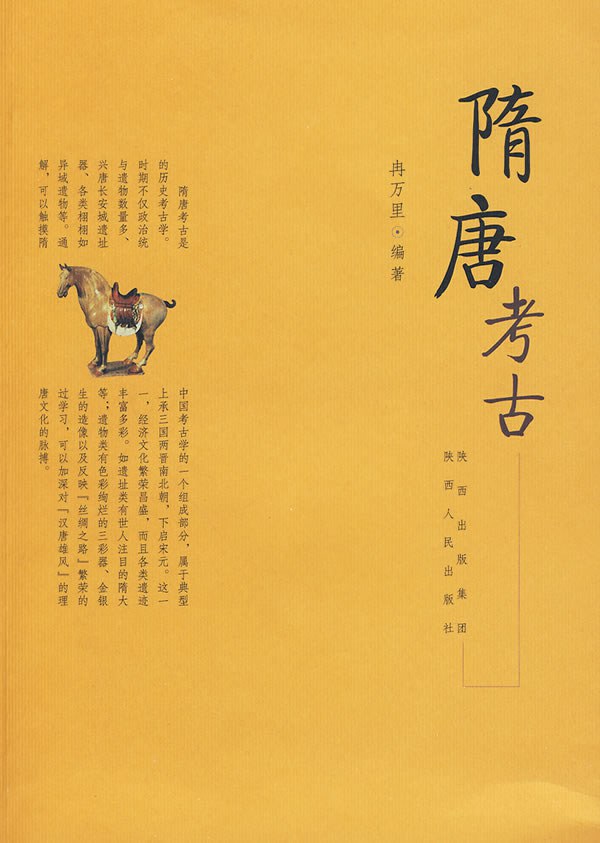 隋唐考古
冉万里·编著
陕西出版集团
陕西人民出版社
隋唐考古是中国考古学的一个组成部分，属于典型
的历史考古学。上承三国两晋南北朝，下启宋元。这一
时期不仅政治统一，经济文化繁荣昌盛，而且各类遗迹
与遗物数量多、丰富多彩。如遗址类有世人注目的隋大
兴唐长安城遗址等；遗物类有色彩绚烂的三彩器、金银
器、各类栩栩如生的造像以及反映『丝绸之路』繁荣的
异域遗物等。通过学习，可以加深对『汉唐雄风』的理
解，可以触摸隋唐文化的脉搏。